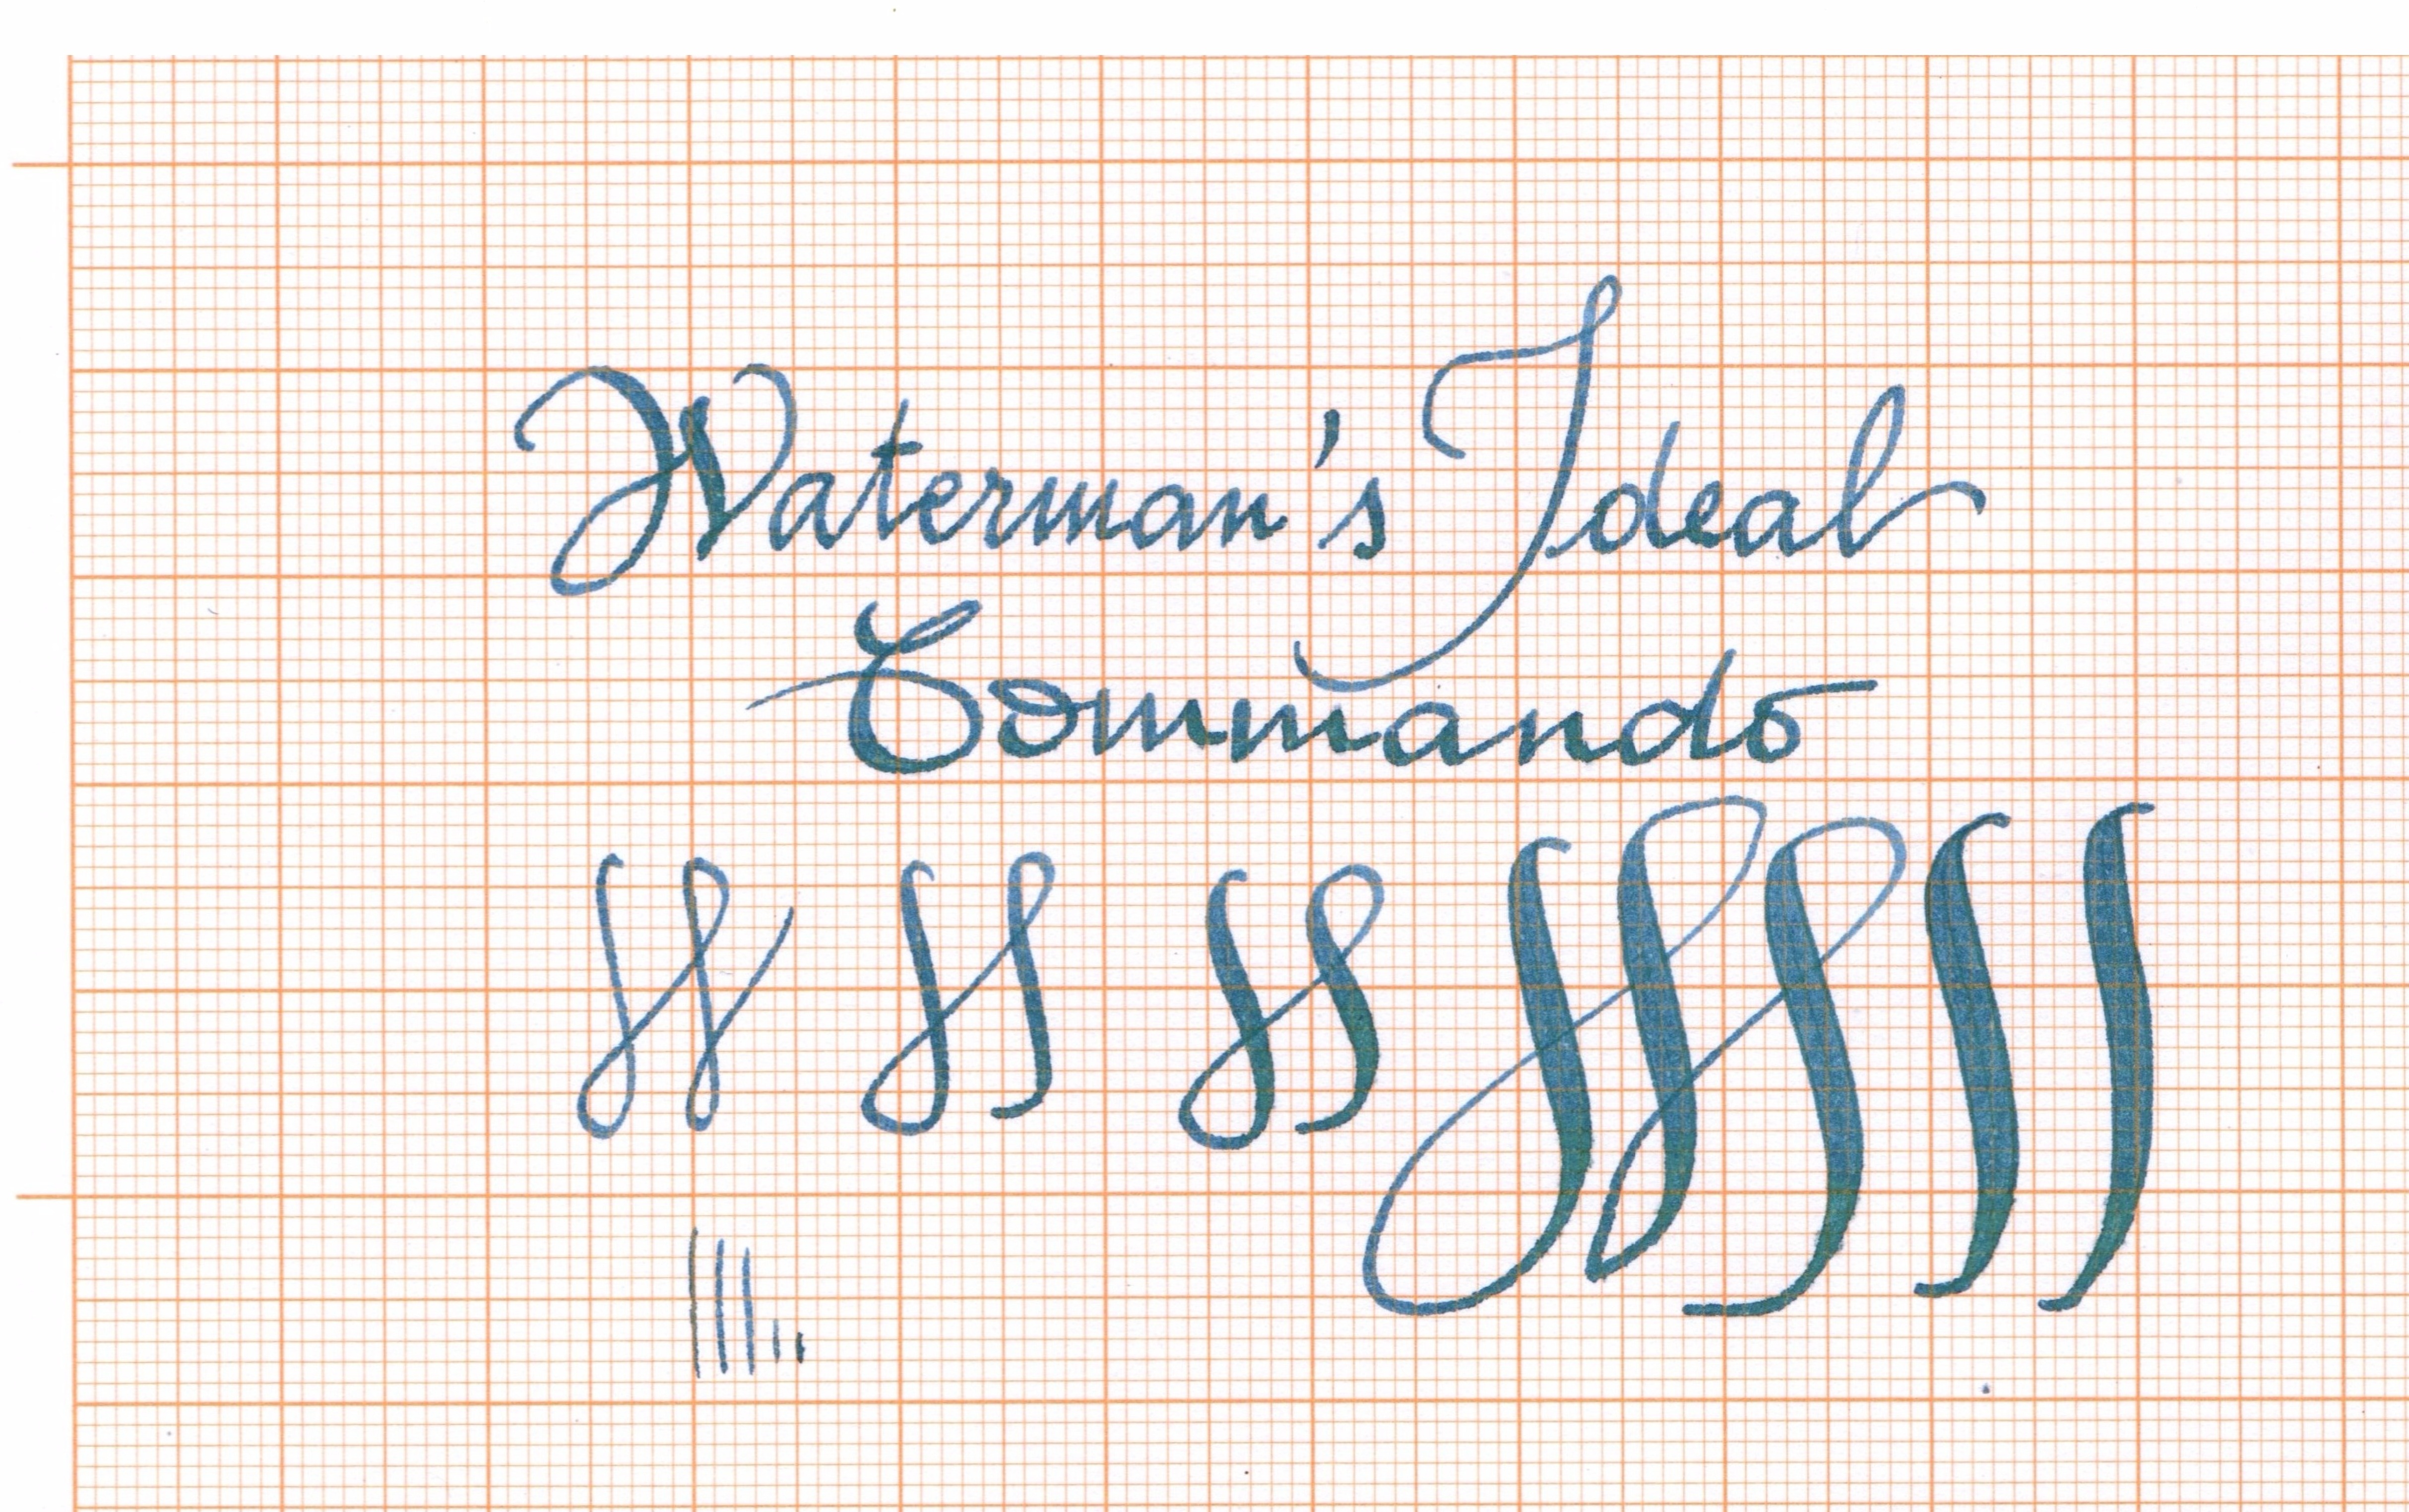 Waterman's Ideal
Commando